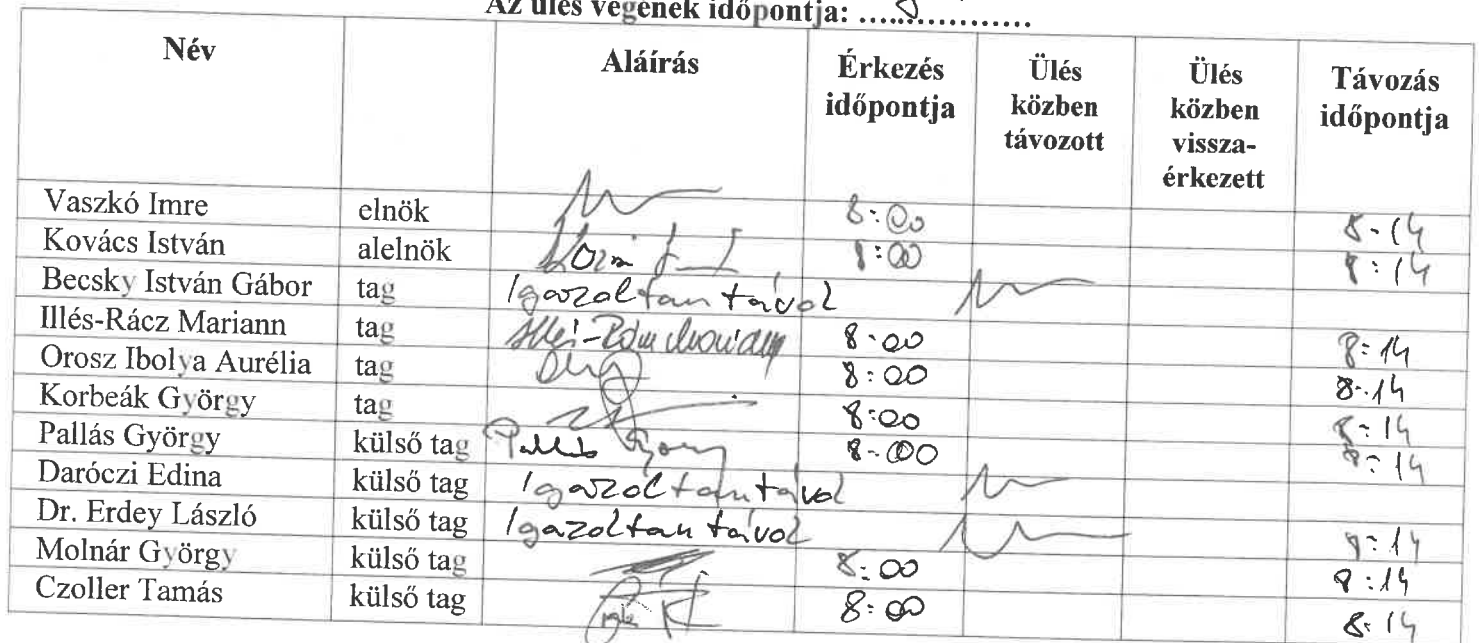 Az ülés végének időpontja: ..................
Név Aláírás Érkezés időpontja Ülés közben távozott Ülés közben vissza-érkezett Távozás időpontja
Vaszkó Imre elnök 8:00 8:14
Kovács István alelnök 8:00 8:14
Becsky István Gábor tag Igazoltan távol
Illés-Rácz Mariann tag Illés-Rácz Mariann 8:00 8:14
Orosz Ibolya Aurélia tag 8:00 8:14
Korbeák György tag 8:00 8:14
Pallás György külső tag Pallás György 8:00 8:14
Daróczi Edina külső tag Igazoltan távol
Dr. Erdey László külső tag Igazoltan távol 8:14
Molnár György külső tag 8:00 8:14
Czoller Tamás külső tag 8:00 8:14